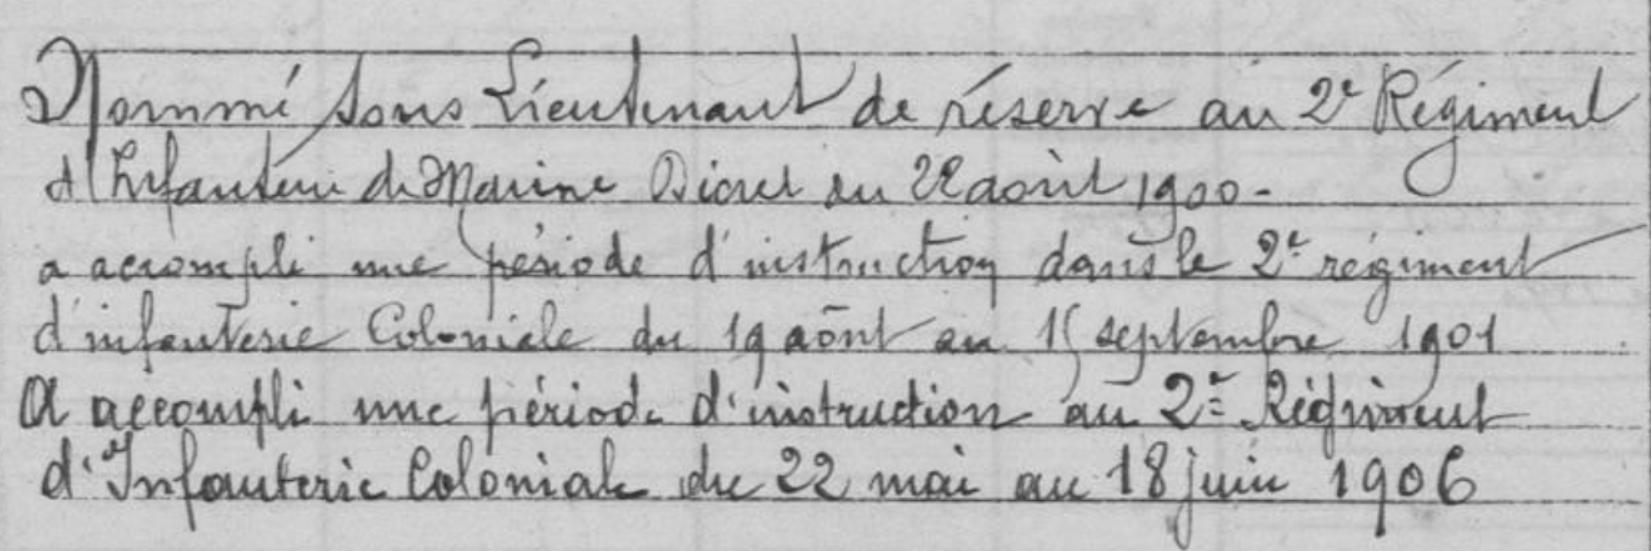 Nommé Sous Lieutenant de réserve au 2e Régiment
d'Infanterie de Marine Décret du 22 août 1900-
a accompli une période d'instruction dans le 2e régiment
d'infanterie Coloniale du 19 août au 15 septembre 1901
A accompli une période d'instruction au 2e Régiment
d'Infanterie Coloniale du 22 mai au 18 juin 1906